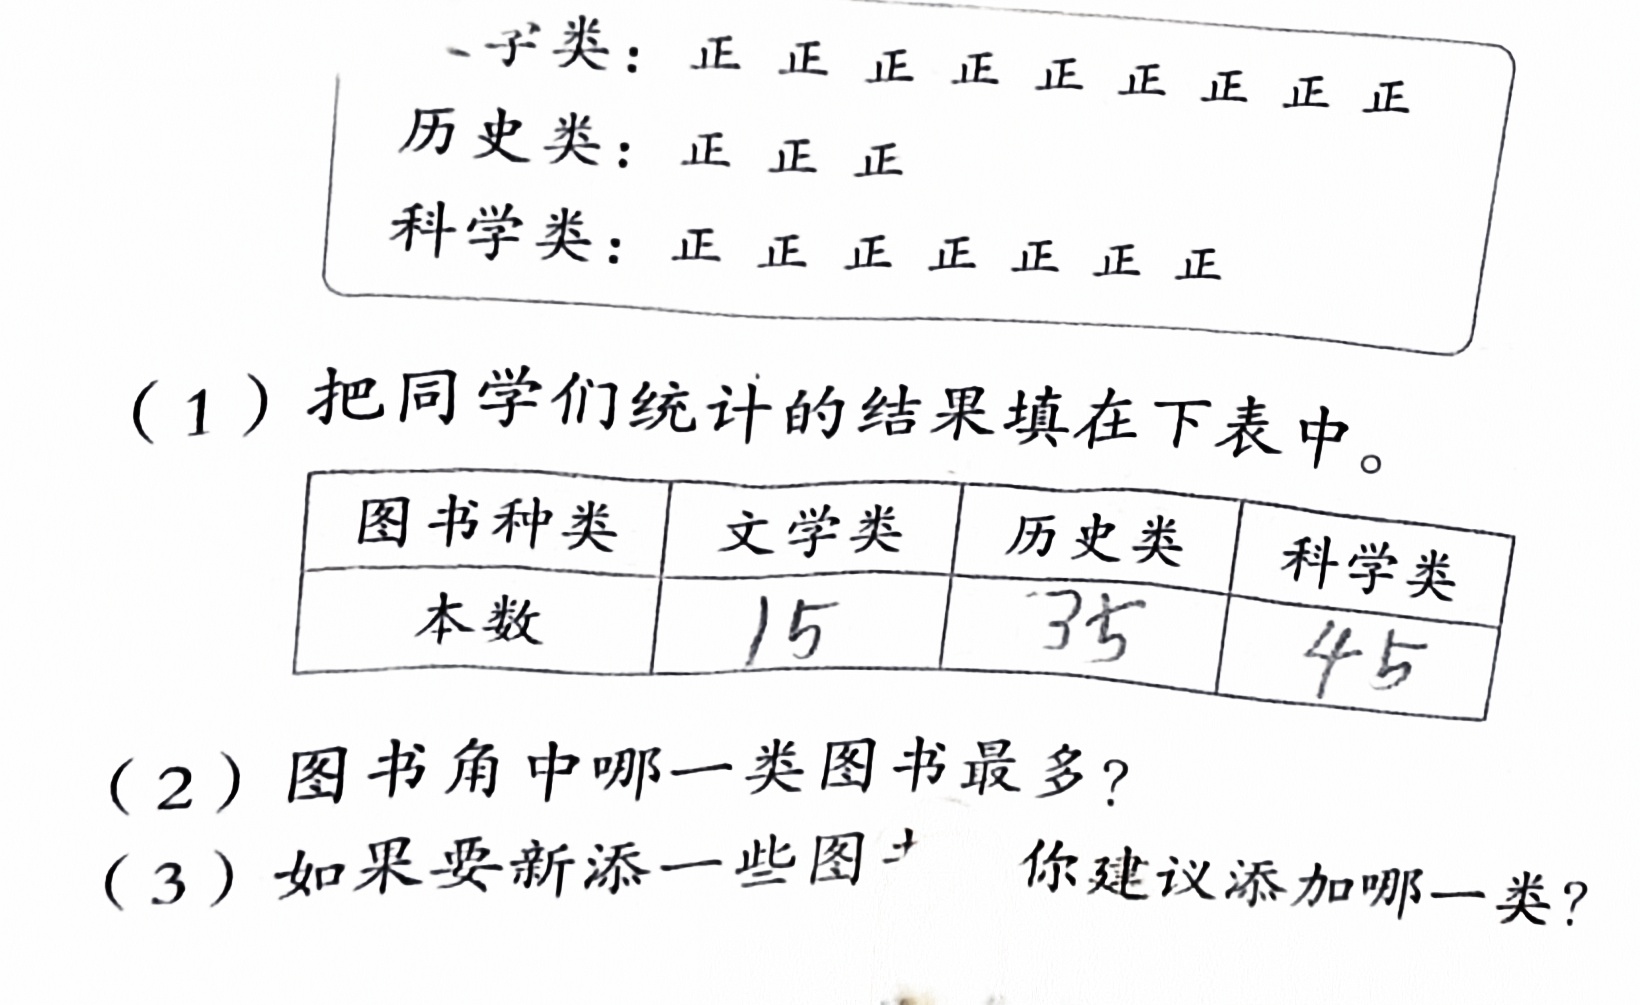 学类：正 正 正 正 正 正 正 正 正
历史类：正 正 正
科学类：正 正 正 正 正 正 正
（1）把同学们统计的结果填在下表中。
图书种类 文学类 历史类 科学类
本数 15 35 45
（2）图书角中哪一类图书最多？
（3）如果要新添一些图 你建议添加哪一类？